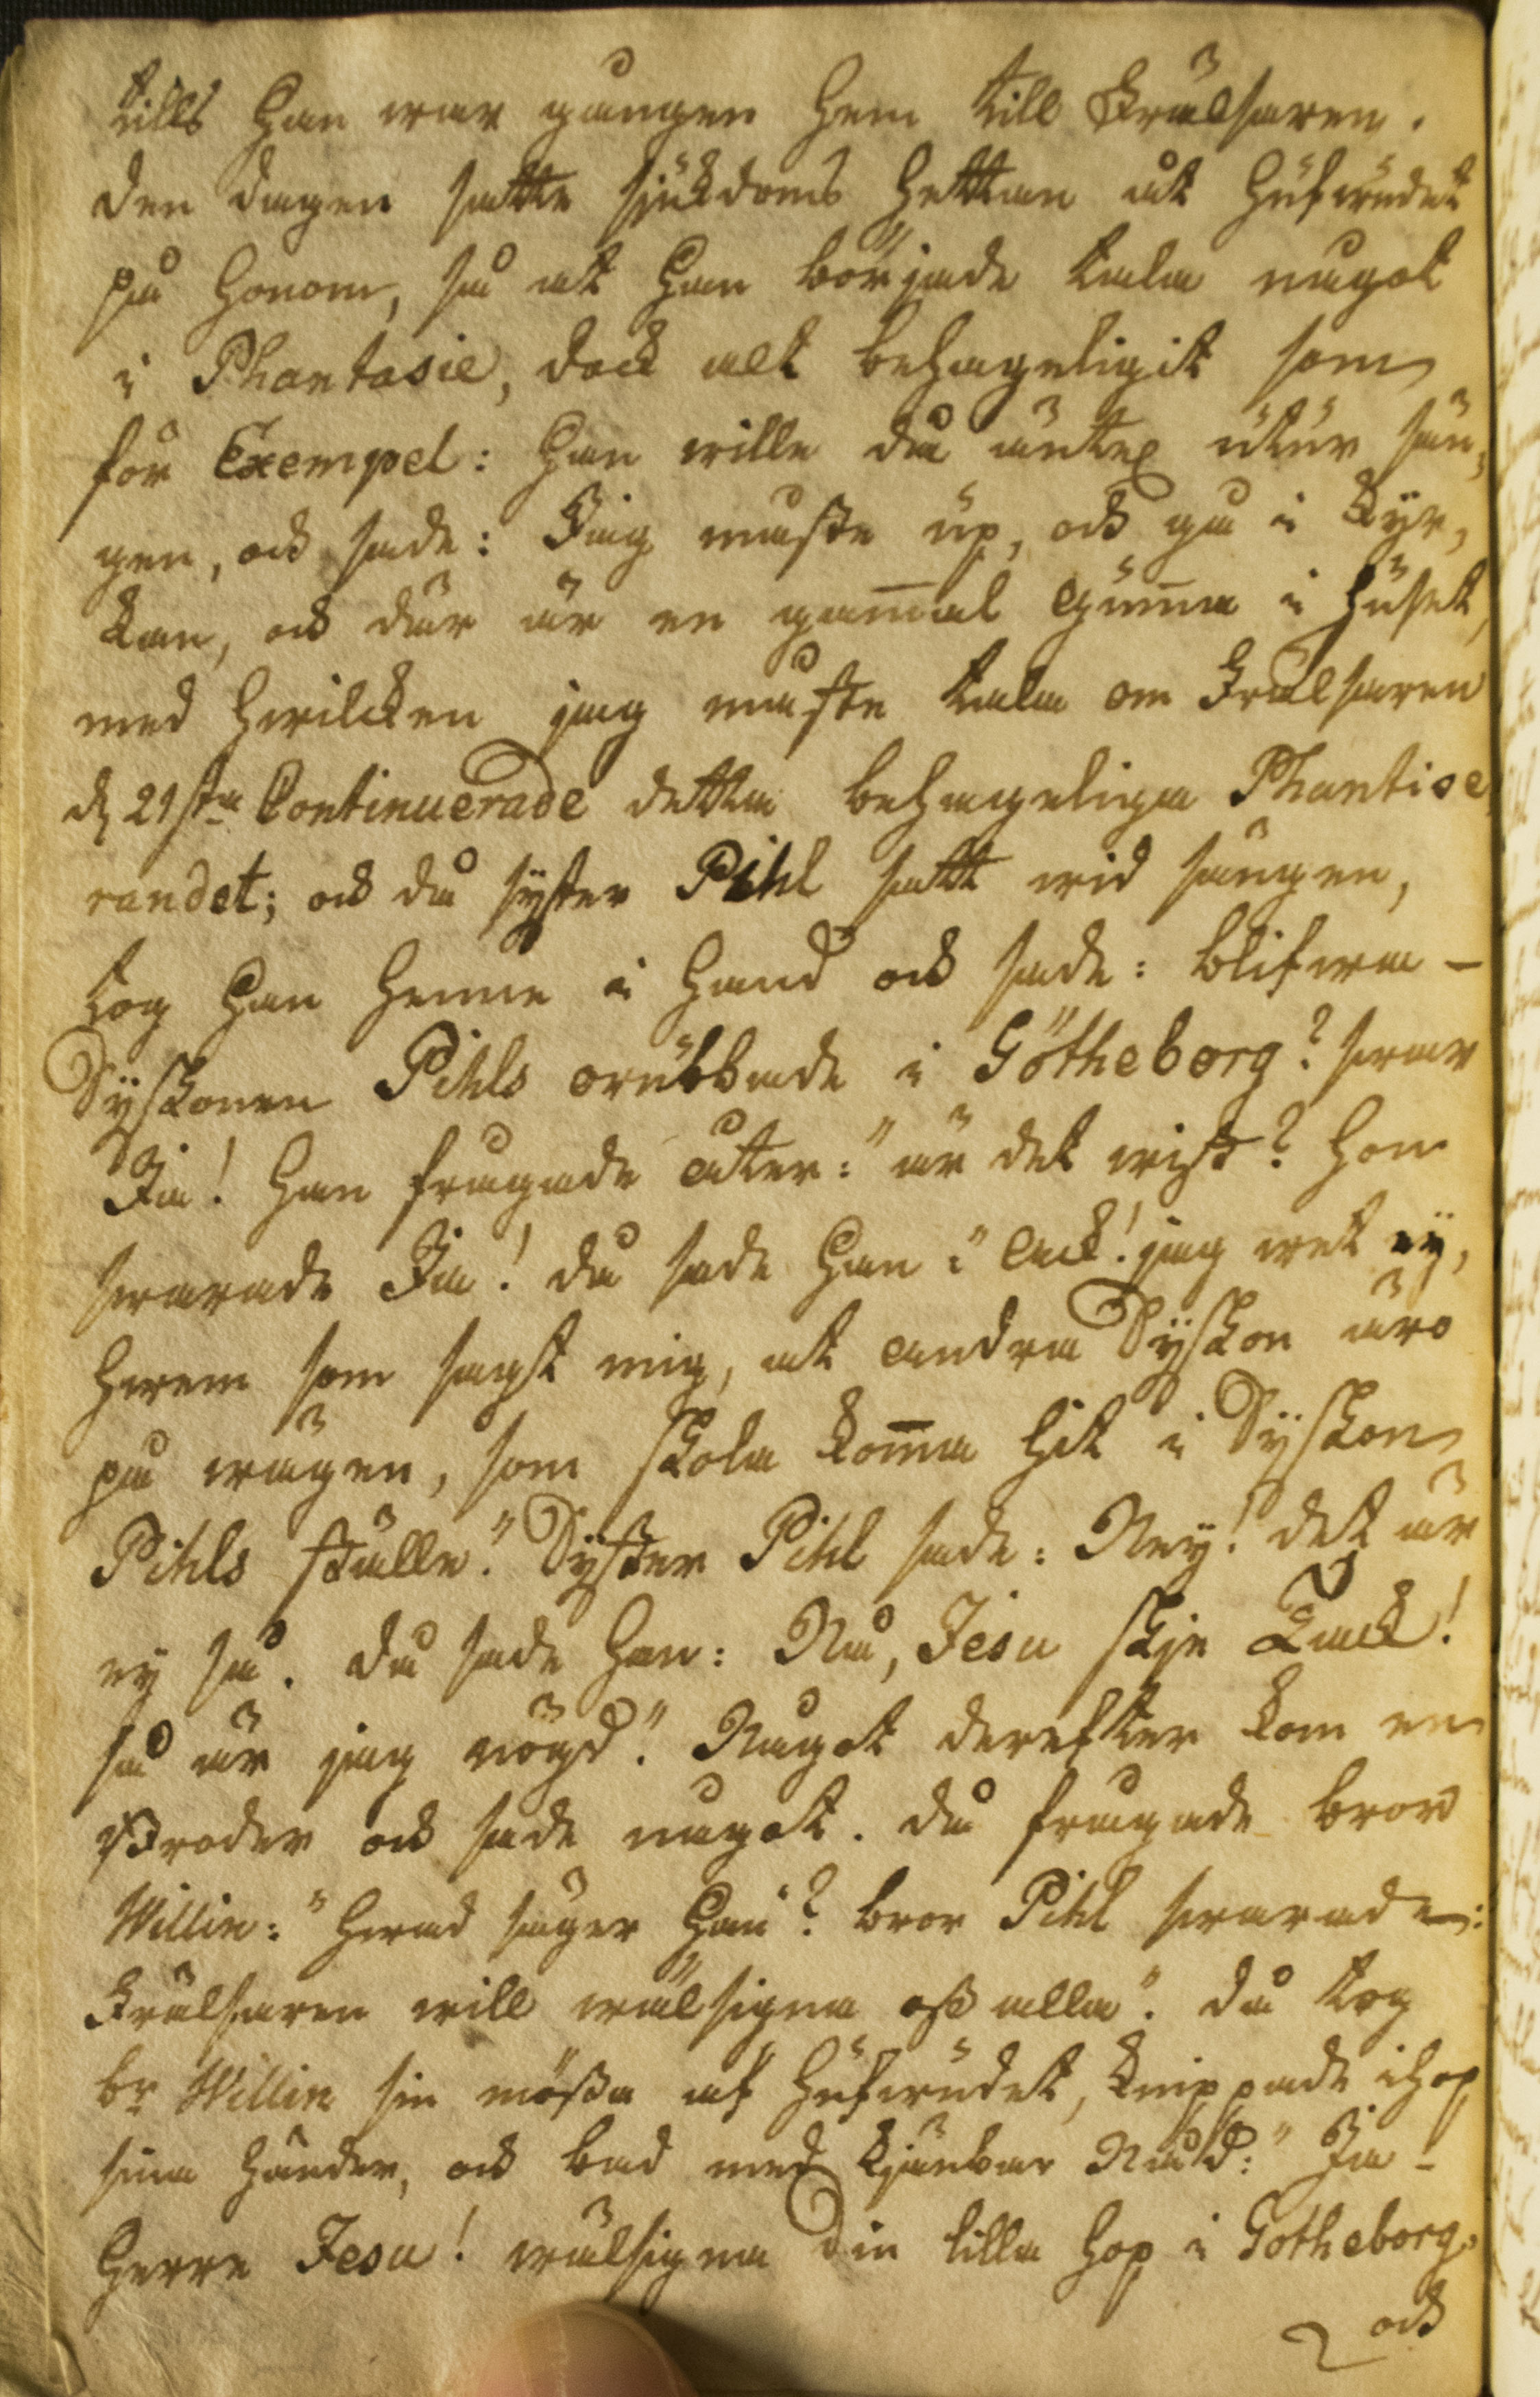 tills Han war gången hem till Frälsaren.
den dagen satte sjukdoms hettan åt hufwudet
på Honom, så at Han började tala något
i Phantasie, dock alt behageligit som
för Exempel: Han wille då utur sän,
gen, och sade: Jag måste up, och gå i Kyr,
kan, och där är en gam̅al Gum̅a i huset,
med hwilcken jag måste tala om Frälsaren
d 21sta Continuerade detta behageliga Phantise
randet; och då syster Pihl satt wid sängen,
tog Han Henne i Hand och sade: blifwa -
Syskonen Pihls orubbade i Götheborg? swar
Ja! Han frågade åter: "är det wist? Hon
swarade Ja! då sade Han: "Ack! jag wet ey,
Hwem som sagt mig, at andra Syskon äro
på wägen, som skola kom̅a hit i Syskon
Pihls ställe". Syster Pihl sade: Ney! det är
ey så. då sade Han: Nå, Jesu skje Tack!
så är jag nögd". Något derefter kom en
Broder och sade något. då frågade bror
Willin: "Hwad säger Han"? bror Pihl swarade:
Frälsaren will wälsigna oss alla". då tog
br Willin sin mössa af Hufwudet, knäppade ihop
sina händer, och bad med kjänbar Nåd: "Ja -
Herre Jesu! wälsigna Din lilla hop i Götheborg.
och